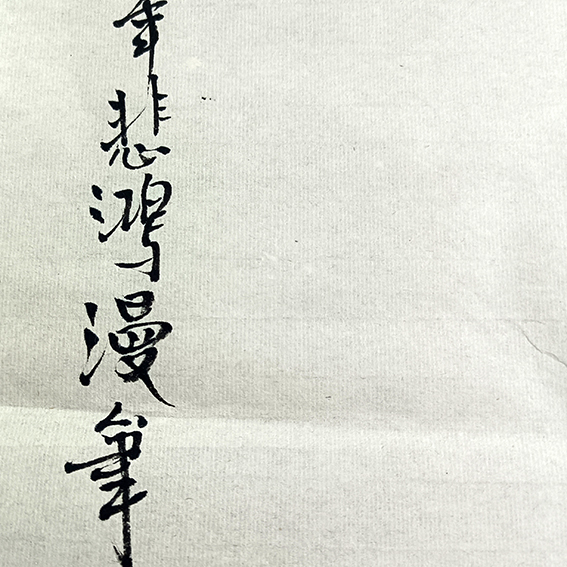 年悲鴻漫筆